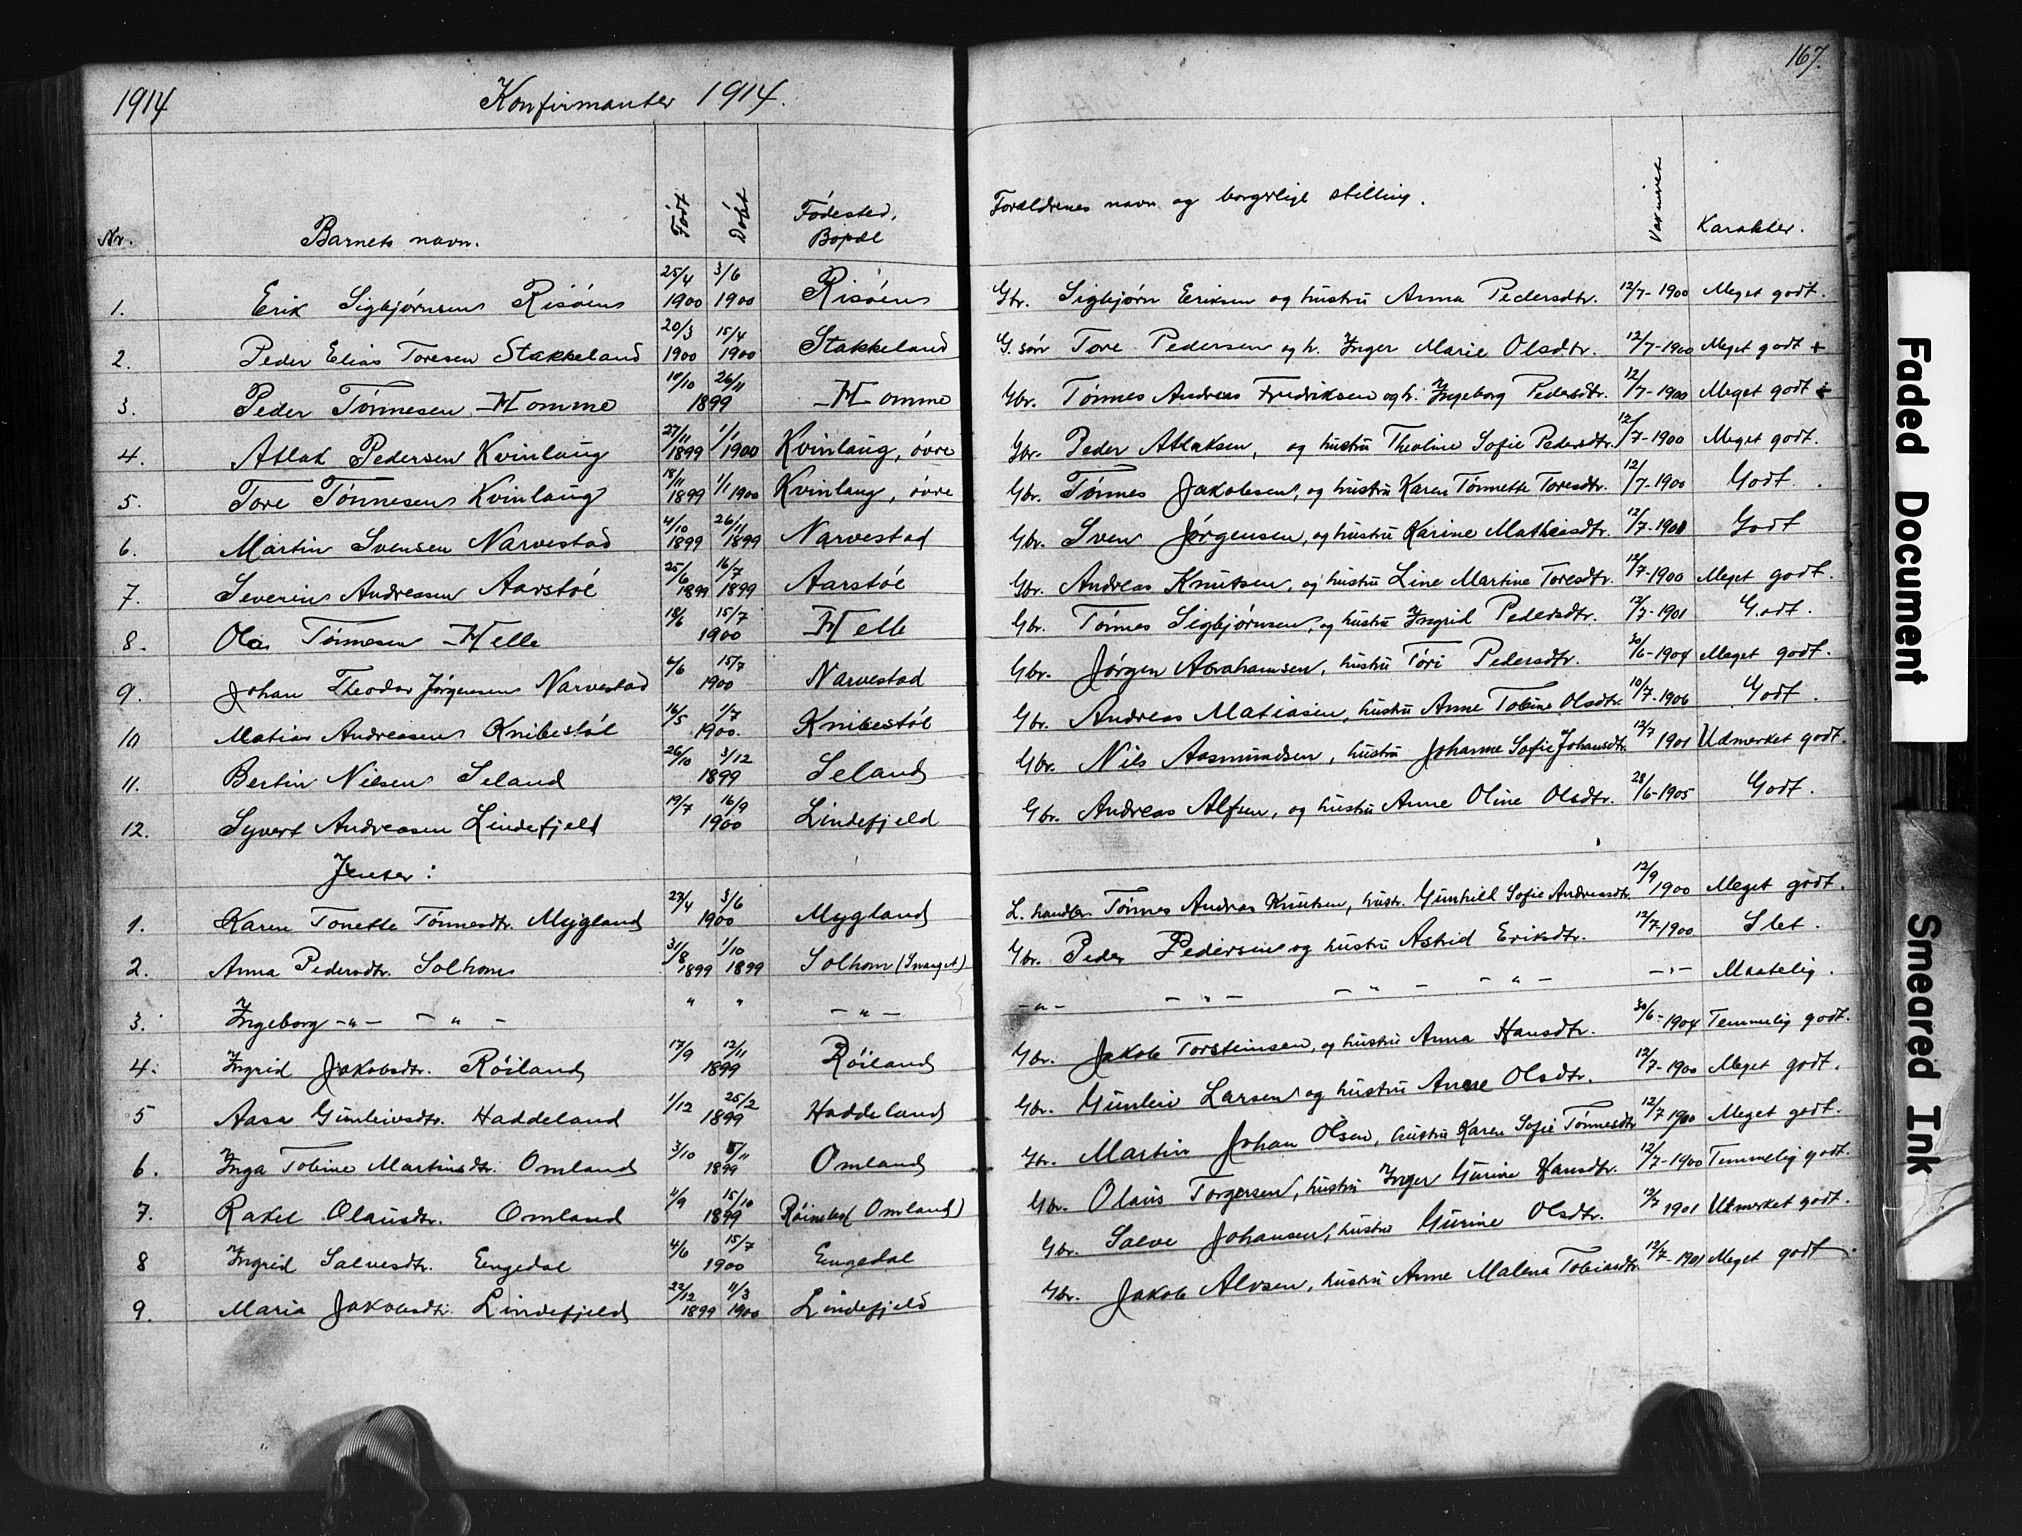 1914 Konfirmanter 1914. 167.
Nr. Barnets navn. Født Døbt Fødested, Bopæl Forældrenes navn og borgerlige stilling. Vaxineret Karakter.
1. Erik Sigbjørnsen Risøen 25/4 1900 3/6 1900 Risøen Gbr. Sigbjørn Eriksen og hustru Anna Pedersdtr. 12/7-1900 Meget godt.
2 Peder Elias Toresen Stakkeland 20/3 1900 15/4 1900 Stakkeland G. søn Tore Pedersen og h. Inger Marie Olsdtr. 12/7-1900 Meget godt +
3. Peder Tønnesen Homme 10/10 26/11 1899 Homme Gbr. Tønnes Andreas Fredriksen og h. Ingeborg Pedersdtr. 12/7-1900 Meget godt
4. Atlak Pedersen Kvinlaug 27/11 1899 1/1 1900 Kvinlaug, øvre Gbr. Peder Atlaksen, og hustru Theoline Sofie Pedersdtr. 12/7-1900 Meget godt.
5. Tore Tønnesen Kvinlaug 18/11 1899 1/1 1900 Kvinlaug, øvre Gbr. Tønnes Jakobsen, og hustru Karen Tønnette Toresdtr. 12/7-1900 Godt.
6. Martin Svensen Narvestad 4/10 1899 26/11 1899 Narvestad Gbr. Sven Jørgensen, og hustru Karine Mathiasdtr. 12/7-1901 Godt
7. Severin Andreasen Aarstøl 25/6 1899 16/7 1899 Aarstøl Gbr. Andreas Knutsen, og hustru Line Martine Toresdtr. 12/7-1900 Meget godt.
8. Ola Tønnesen Helle 18/6 15/7 1900 Helle Gbr. Tønnes Sigbjørnsen, og hustru Ingrid Pedersdtr. 12/7-1901 Godt.
9. Johan Theodor Jørgensen Narvestad 6/6 15/7 1900 Narvestad Gbr. Jørgen Abrahamsen, hustru Tøri Pedersdtr. 30/6-1904 Meget godt.
10 Matias Andreasen Knibestøl 16/5 1/7 1900. Knibestøl Gbr. Andreas Matiasen, hustru Anne Tobine Olsdtr. 10/7-1906 Godt.
11. Bertin Nilsen Seland 26/10 3/12 1899 Seland Gbr. Nils Aasmundsen, hustru Johanne Sofie Johansdtr. 12/7 1901 Udmerket godt.
12. Syvert Andreasen Lindefjeld 19/7 16/9 1900 Lindefjeld Gbr. Andreas Alfsen, og hustru Anne Oline Olsdtr. 28/6-1905 Godt.
Jenter:
1. Karen Tonette Tønnesdtr. Mygland 27/4 3/6 1900 Mygland L. handler Tønnes Andreas Knutsen, hustr. Gunhild Sofie Andreasdtr. 12/9 1900 Meget godt.
2. Anna Pedersdtr. Solhom 31/8 1899 1/10 1899 Solhom (Svaget) Gbr. Peder Pedersen og hustru Astrid Eriksdtr. 12/7-1900 Slet.
3. Ingeborg -"- - " - " " - " - -"- - " - - " - - " - -"- Maatelig.
4. Ingrid Jakobsdtr. Røiland 17/9 12/11 1899 Røiland Gbr. Jakob Torsteinsen, og hustru Anna Hansdtr. 30/6-1904 Temmelig godt.
5 Aasa Gunleivsdtr. Haddeland 1/12 25/2 1899 Haddeland Gbr. Gunleiv Larsen og hustru Anne Olsdtr. 12/7-1900 Meget godt.
6. Inga Tobine Martinsdtr. Omland 3/10 5/11 1899 Omland Gbr. Martin Johan Olsen, hustru Karen Sofie Tønnesdtr 12/7 1900 Meget godt.
7. Rakel Olausdtr. Omland 11/9 15/10 1899 Omland) Gbr. Olaus Torgersen, hustru Inger Gurine Hansdtr. 12/7-1900 Temmelig godt.
8 Ingrid Salvesdtr. Engedal 4/6 15/7 1900 Engedal Gbr. Salve Johansen, hustru Gurine Olsdtr. 12/7 1901 Udmerket godt.
9. Maria Jakobsdtr. Lindefjeld 22/12 1899 11/3 1900 Lindefjeld Gbr. Jakob Alvsen, hustru Anne Malena Tobiasdtr. 12/7-1901 Meget godt.
Faded Document
Smeared Ink